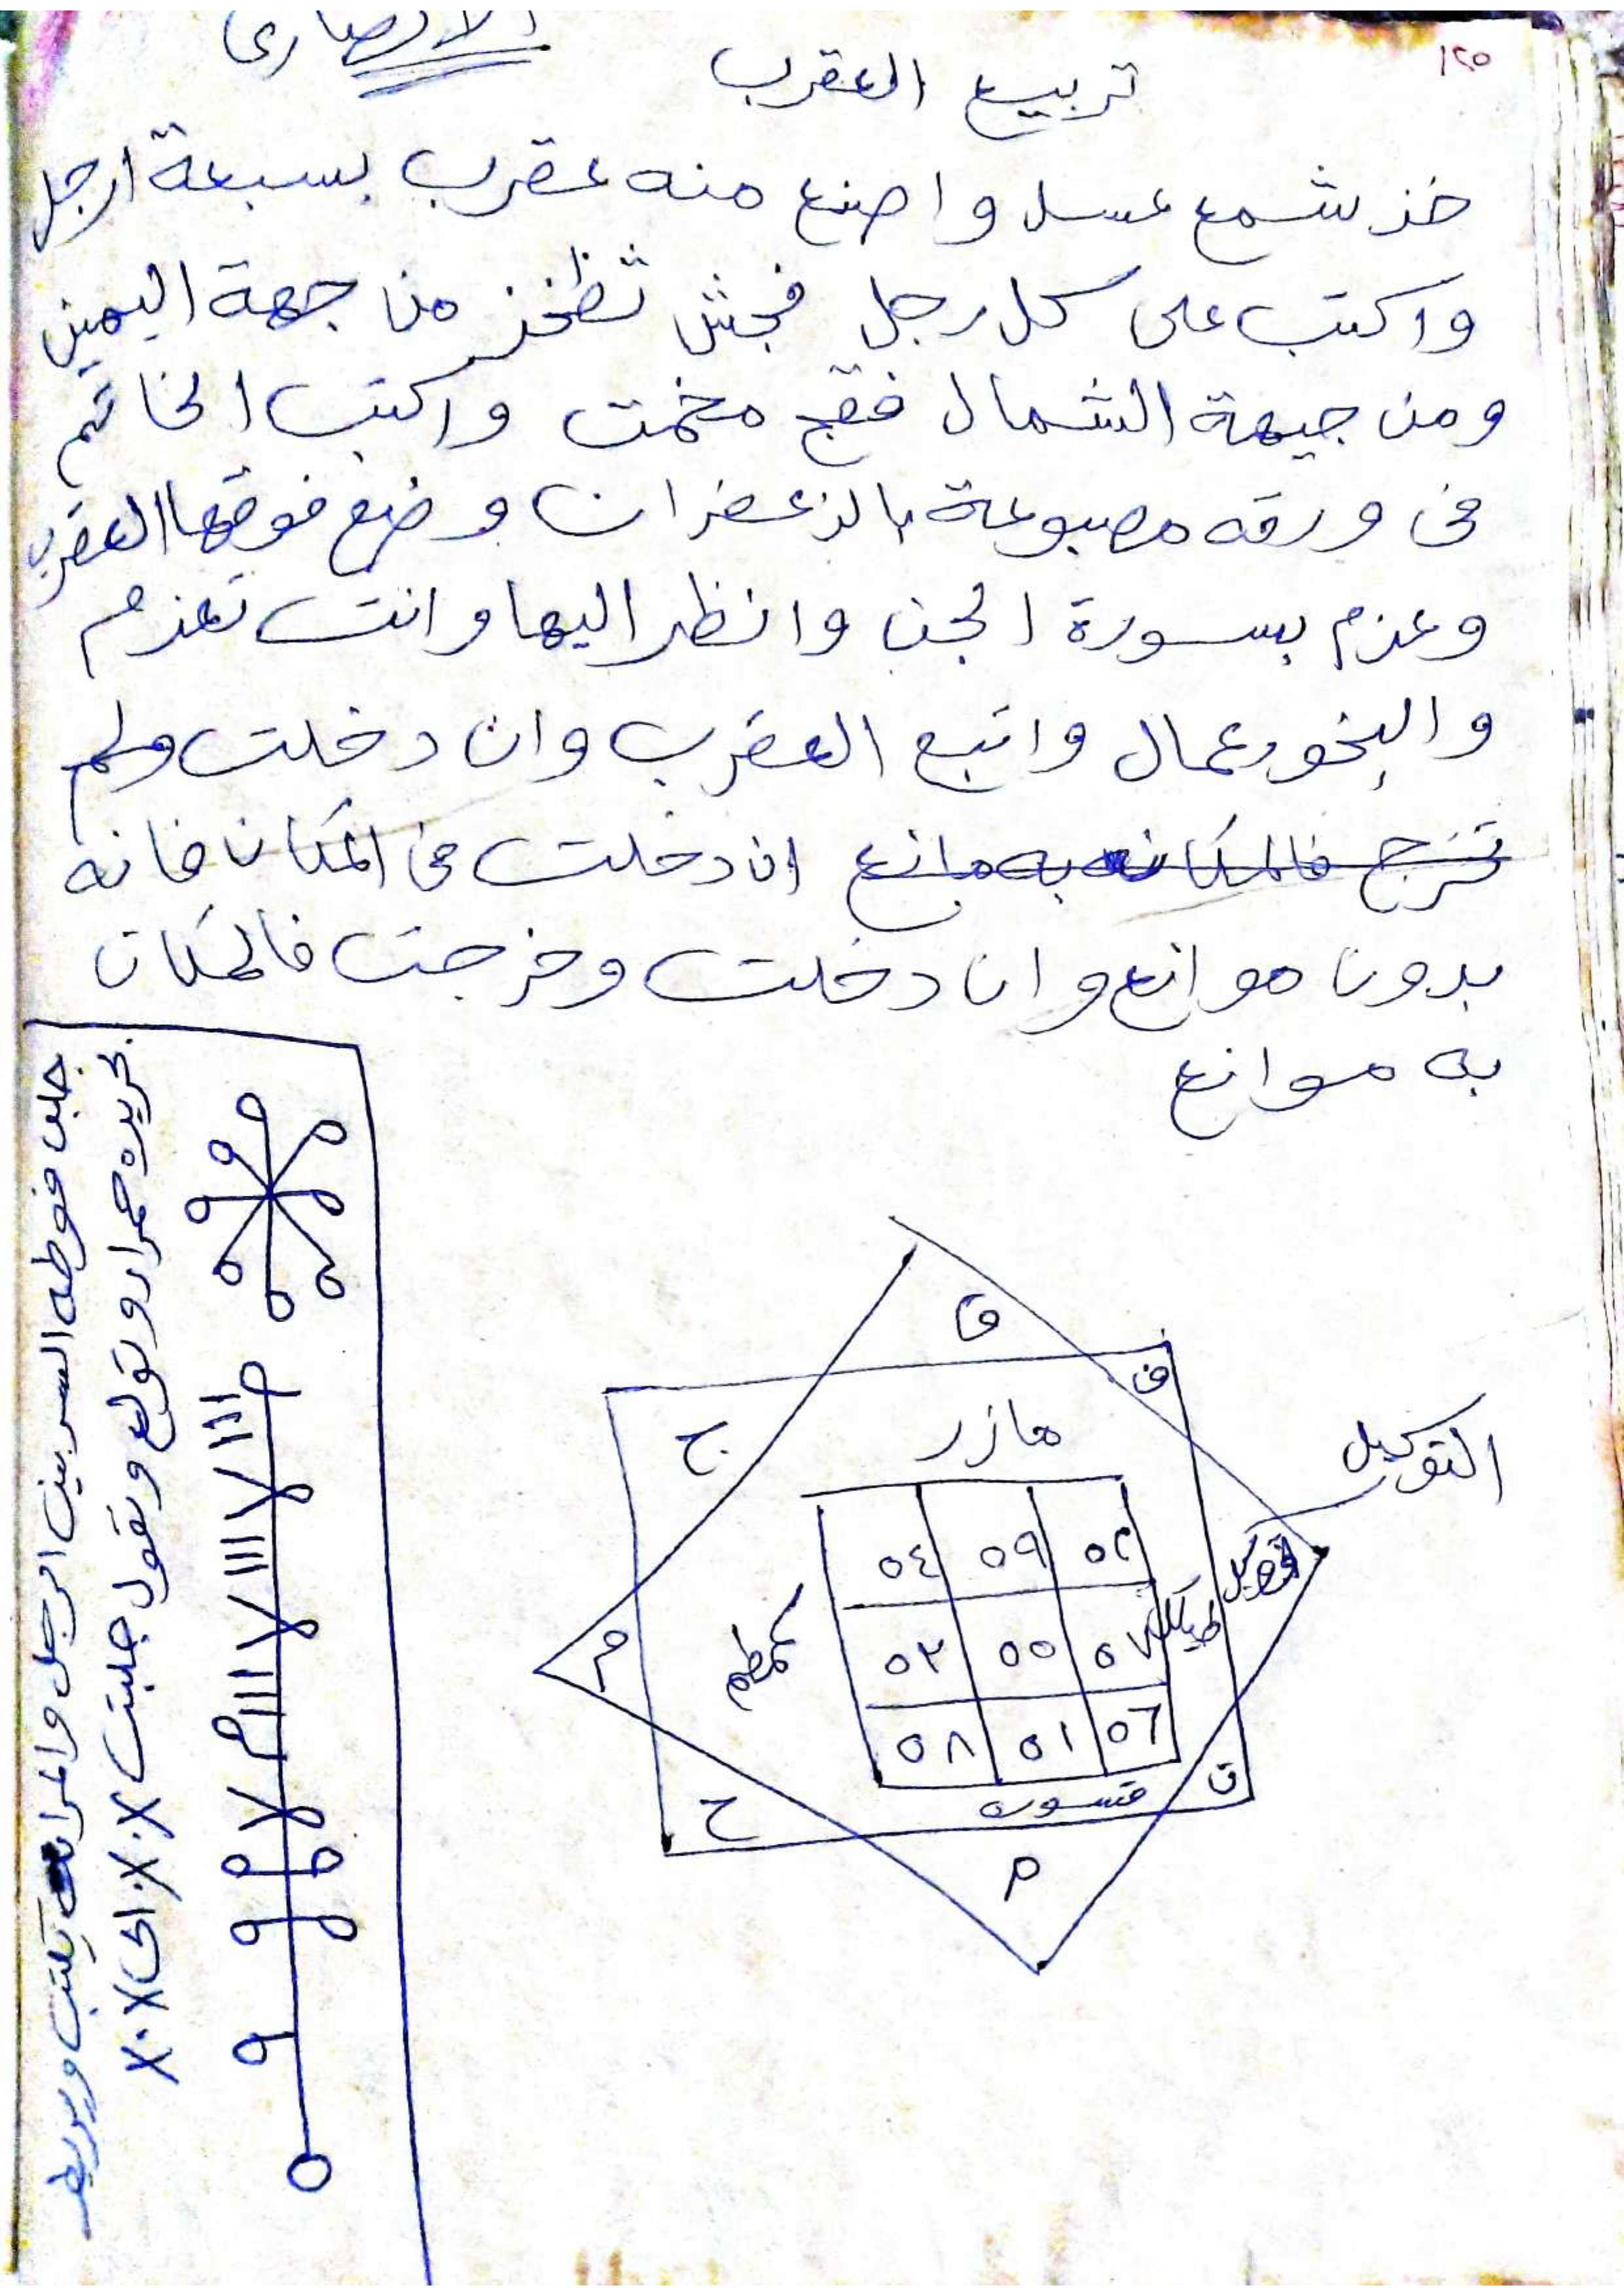 ١٢٥
الانصارى
تربيع العقرب
خذ شمع عسل واصنع منه عقرب بسبعة ارجل
واكتب على كل رجل فجش ثظخذ من جهة اليمين
ومن جيهة الشمال فقج مخمت واكتب الخاتم
فى ورقه مصبوعة بالزعفران وضع فوقها العقرب
وعزم بسورة الجن وانظر اليها وانت تعزم
والبخور عمال واتبع العقرب وان دخلت ولم
تخرج فالمكان به مانع ان دخلت فى المكان فانه
بدون موانع وان دخلت وخرجت فالمكان
به موانع
ق
ف
ج
مازر
التوكيل
٥٤ ٥٩ ٥٢
٥٣ ٥٥ ٥٧
٥٨ ٥١ ٥٦
طيكل
كمطم
م
قسوره
ح
ت
م
جلب فوطه السر بين الرجل والمراه يكتب ويربط
بحريره حمرا وتولع وتقول جلبت X.X.X الى X.X